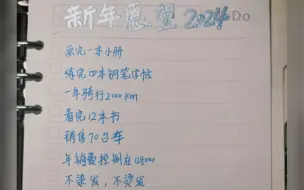 新年愿望2024 Do
画完一本小册
练完四本钢笔字帖
一年骑行2000km
看完12本书
销售70台车
年销量控制在48000
不染发，不烫发